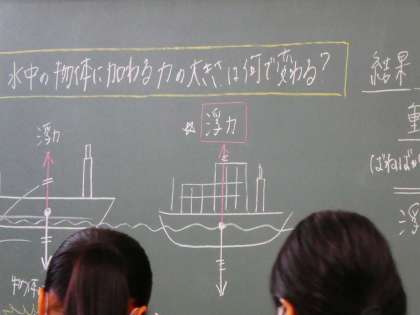 水中の物体に加わる力の大きさは何で変わる?
浮力
☆ 浮力
物体
結果
重
ばねばか
浮